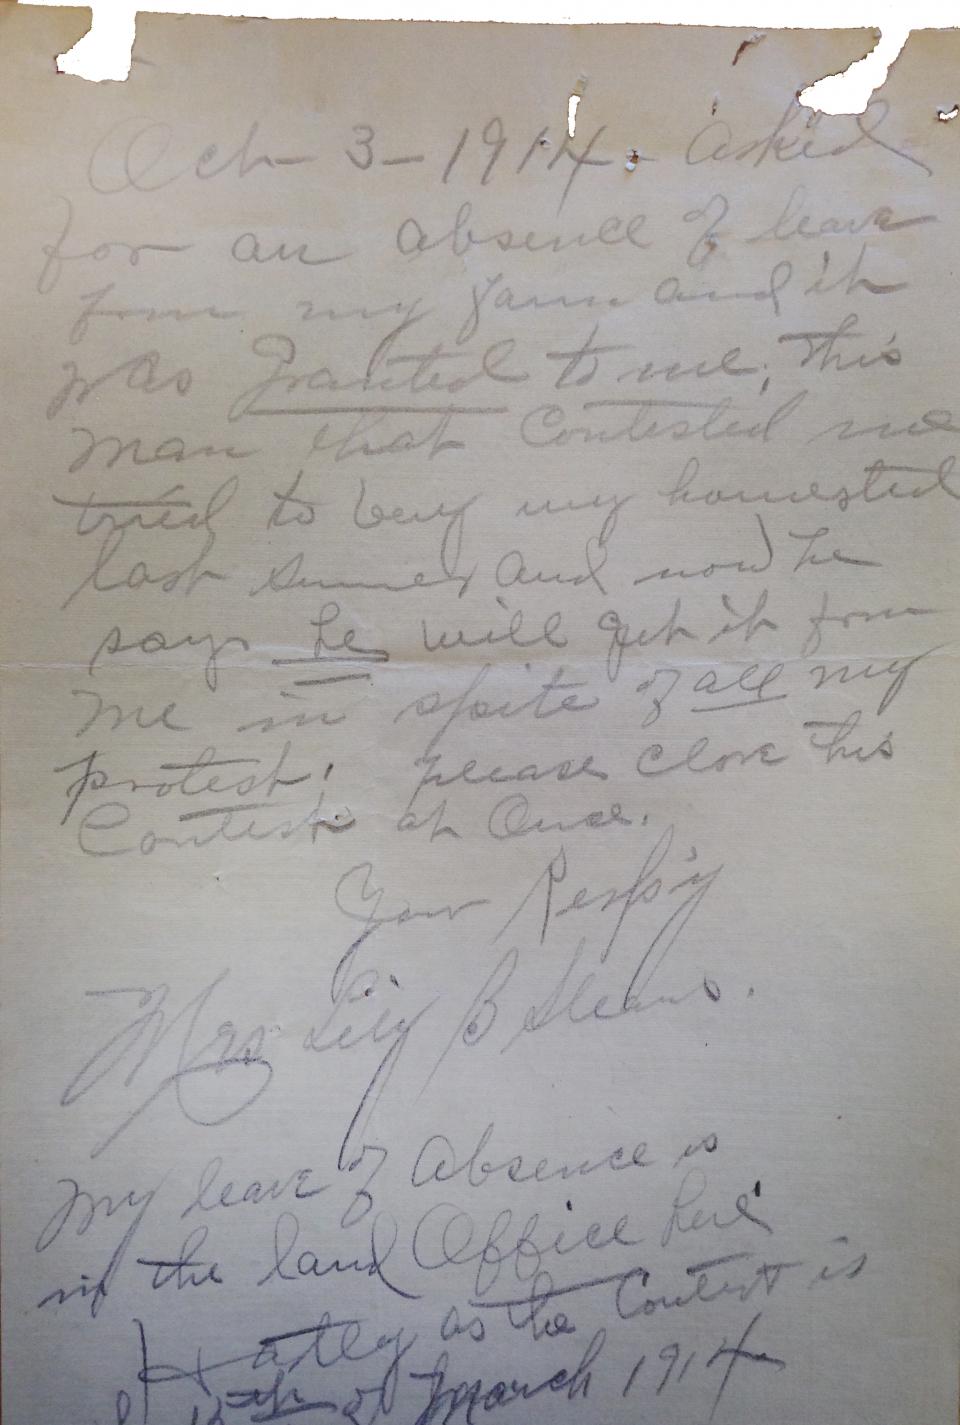 Oct - 3 - 1914 - asked
for an absence of leave
from my farm and it
was Granted to me, This
man that Contested me
tried to buy my homested
last summer and now he
says he will get it from
me in spite of all my
protest! please close this
Contest at Once.
Your Resp'y
Mrs Lily B Stearns.
My leave of absence is
in the land Office here
as the Contest is
12th of March 1914